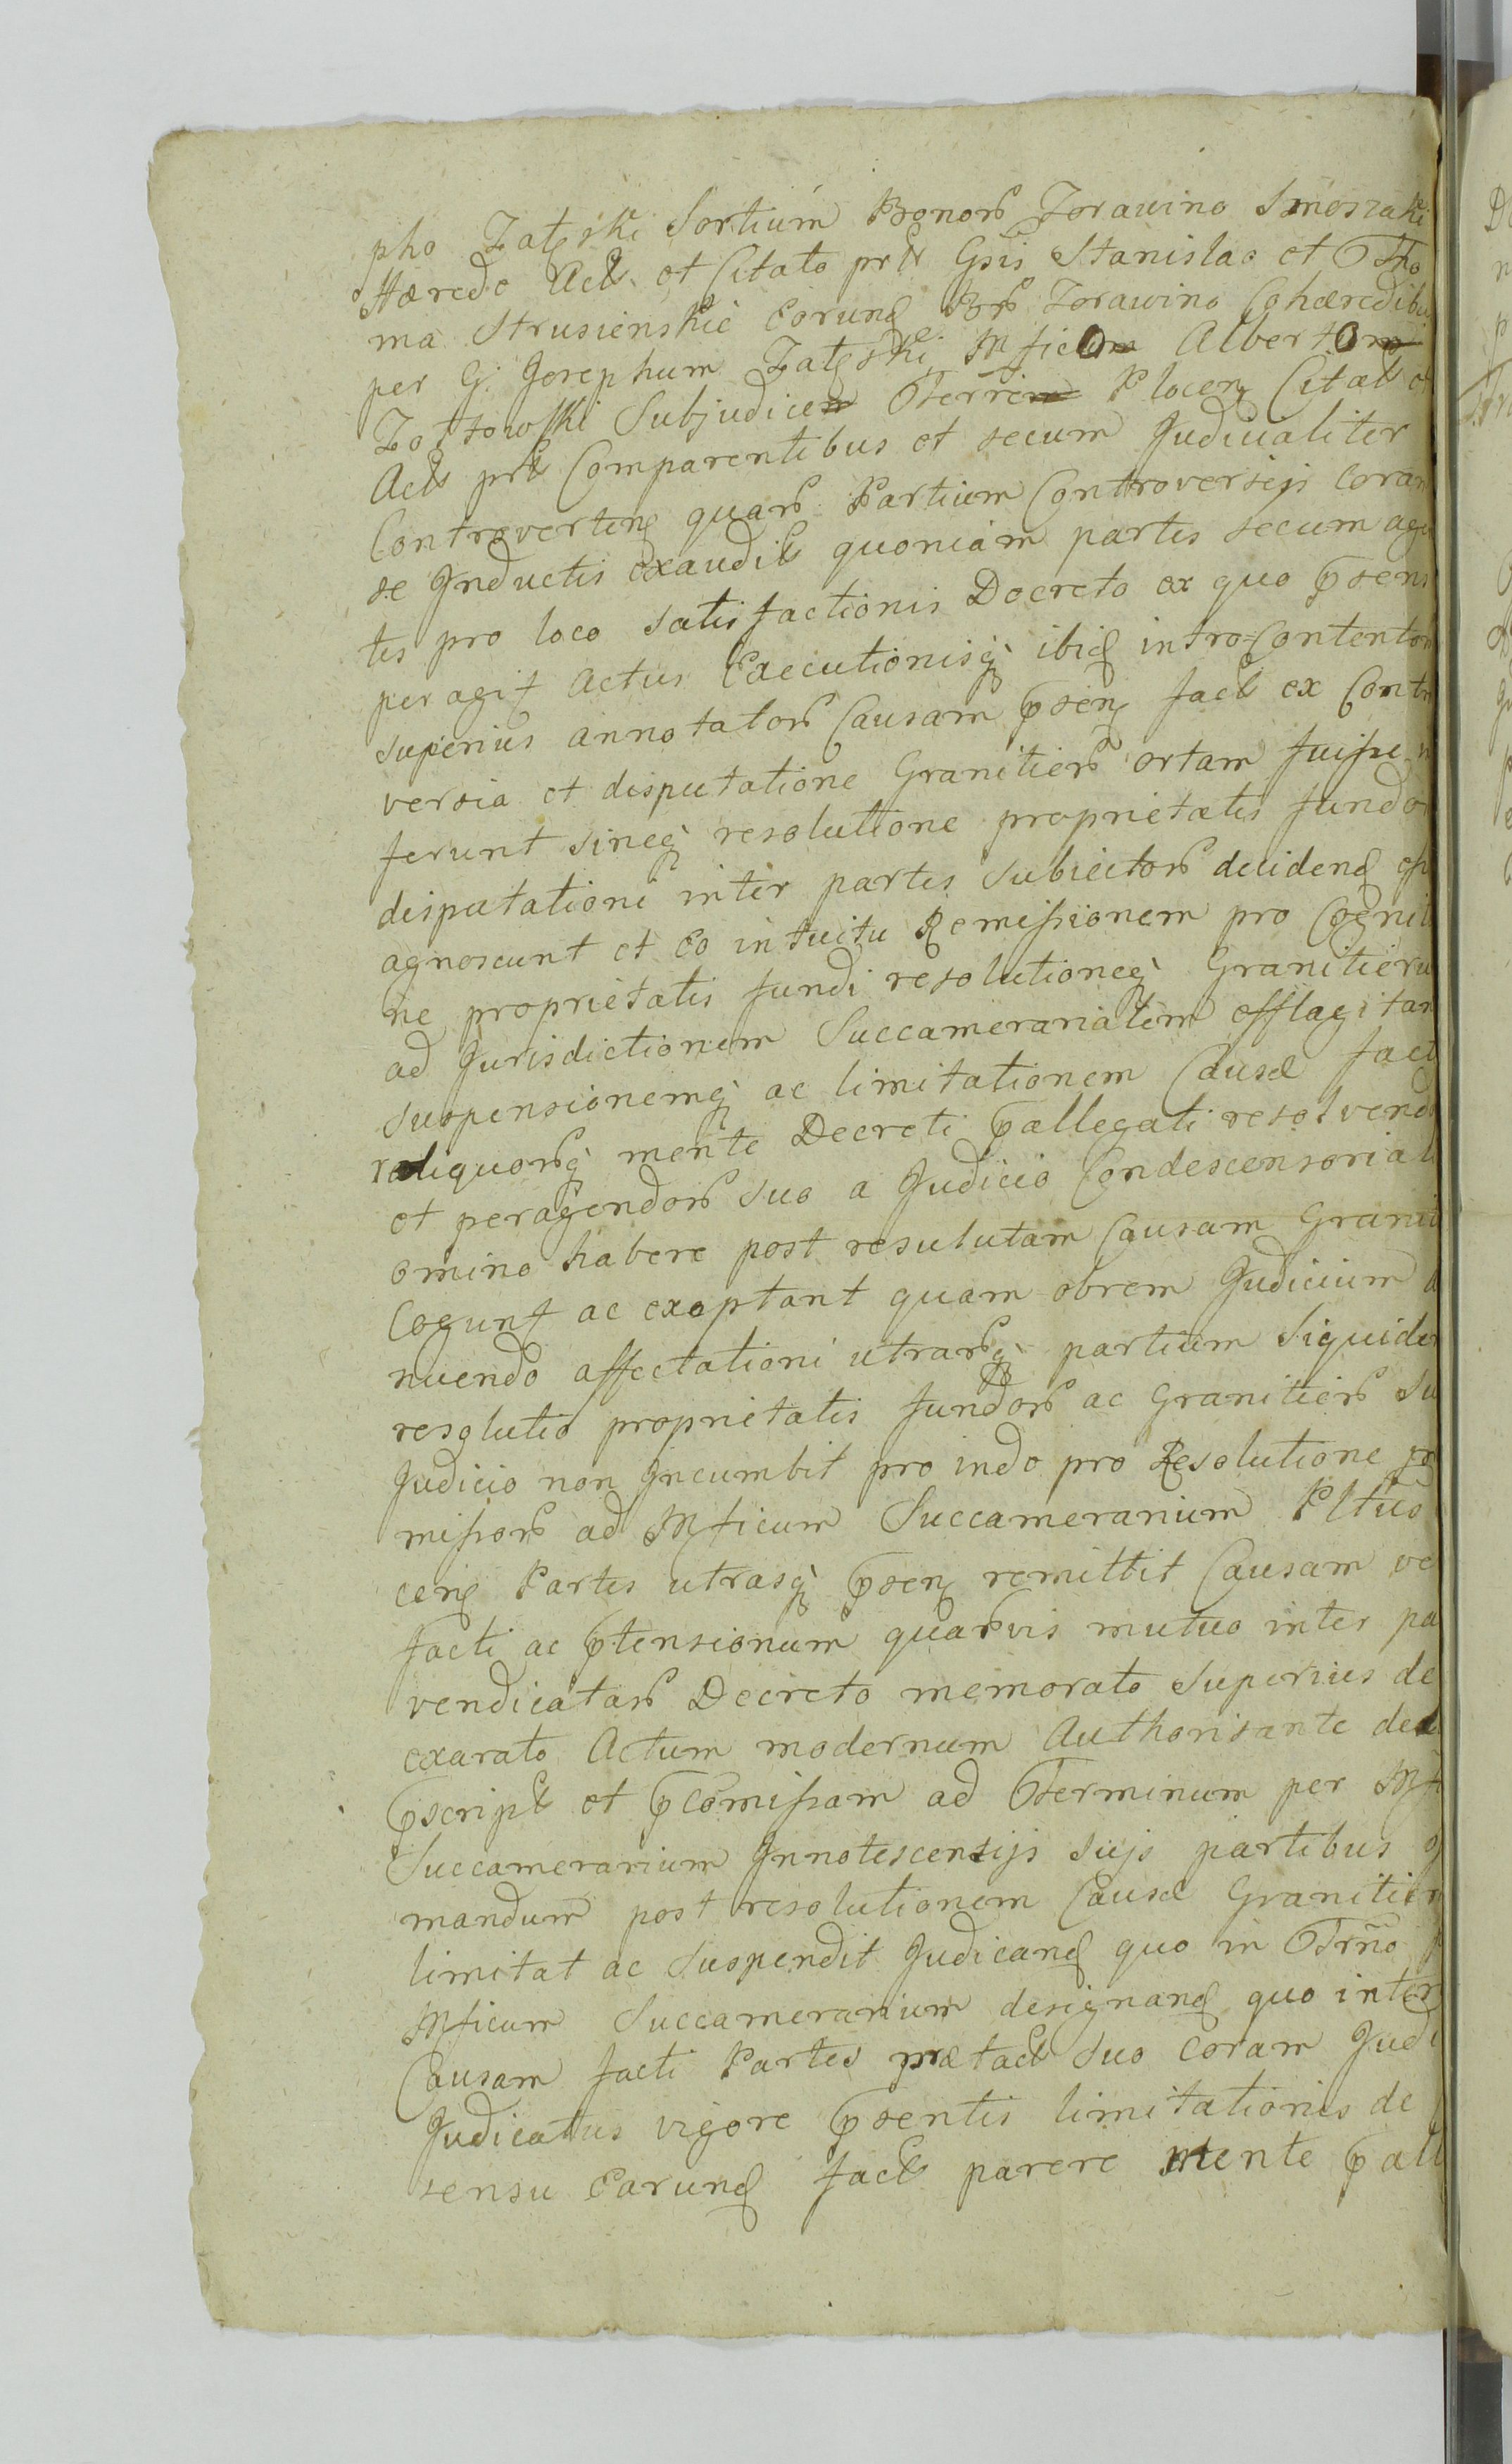 pho Załęski Sortium Bonorū Zorawino Smoszaki
Hærede Act et Citato prŧr Gsis Stanislao et Tho
ma Strusienskie Eorunḑ Brū Zorawino Cohæredibus
per G: Josephum Załęski Mficō Alberto
Zołtowski Subjudice Terre Plocen Citat et
Act prŧ Comparentibus et secum Judicialiter
Controverteng quarū Partium Controversijs coram
se Inductis exaudit quoniam partes secum agen
tes pro loco satisfactionis Decreto ex quo psens
peragit actus Executionisq ibid intro-contentorū
superius annotatorū Causam psen fact ex Contro
versia et disputatione Granitierū ortam fuisse
ferunt sineq resolutione proprietatis fundorū
disputationi inter partes Subiectorū decidend esse
agnoscunt et Eo intuitu Remissionem pro Cognitio
ne proprietatis fundi resolutioneq Granitierum
ad Jurisdictionem Succamerarialem efflagitan
suspensionemq ac limitationem Causæ fact
reliquorūq mente Decreti pallegati resolvend
et peragendorū suo a Judicio Condescensoriali
omino habere post resulutam Causam Granit
Cogunt ac exoptant quam obrem Judicium a
nuendo affectationi utrarūq partium Siquidem
resolutio proprietatis fundorū ac Granitierū su
Judicio non Incumbit pro indo pro Resolutione pr
missorū ad Mficum Succamerarium Pltus
cen Partes utrasq psen remittit Causam ve
facti ac ptensionum quarūvis mutuo inter pa
vendicatarū Decreto memorato Superius de
exarato Actum modernum Authorisante de
pscript et pcōmissam ad Terminum per Mf
Succamerarium Innotescentijs suis partibus
mandum post resolutionem Causæ Granitier
limitat ac Suspendit Judicand quo in Trño
Mficum Succamerarium designand quo inter
Causam facti Partes prætact Suo coram Judi
Judicatus vigore psentis limitationis de
sensu Earund fact parere mente pall